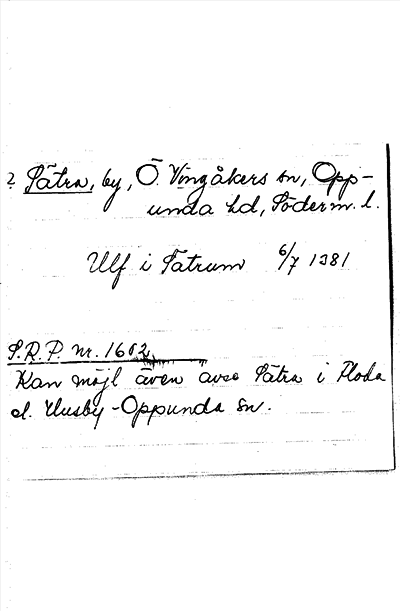 ? Sätra, by, Ö. Vingåkers sn, Opp-
unda hd, Söderm. l.
Ulf i Sätrum 6/7 1381
S.R.P. nr. 1602
Kan möjl även avse Sätra i Floda
el. Husby-Oppunda sn.